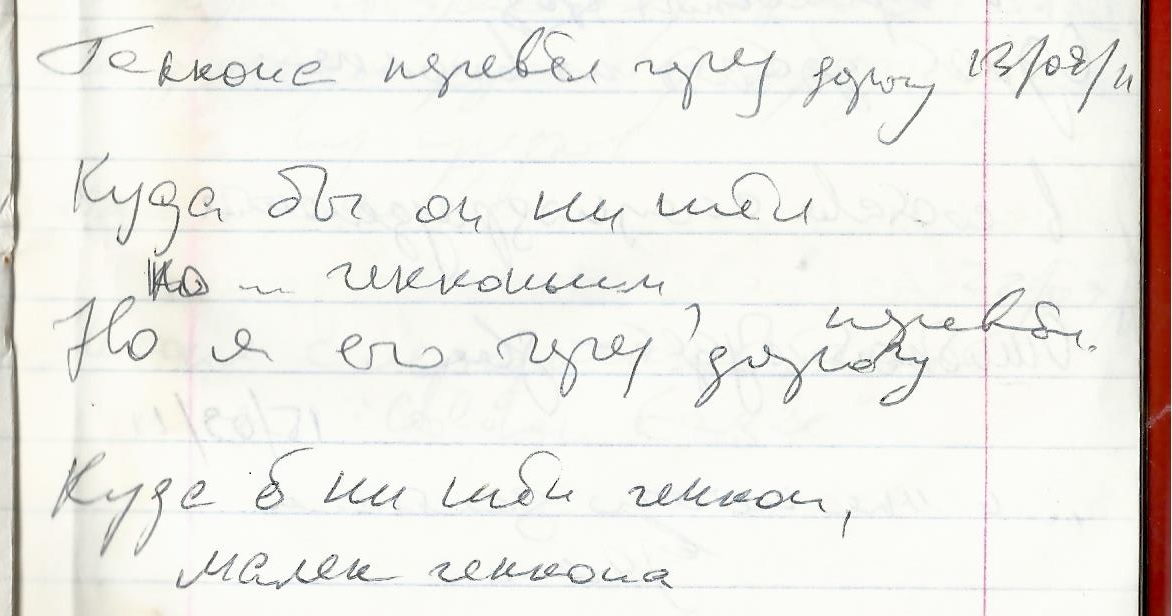 Геккона перевёл через дорогу 13/08/11
Куда бы он ни шёл
но ... гекконьим
Но я его через дорогу перевёл.
Куда б ни шёл геккон,
малек геккона